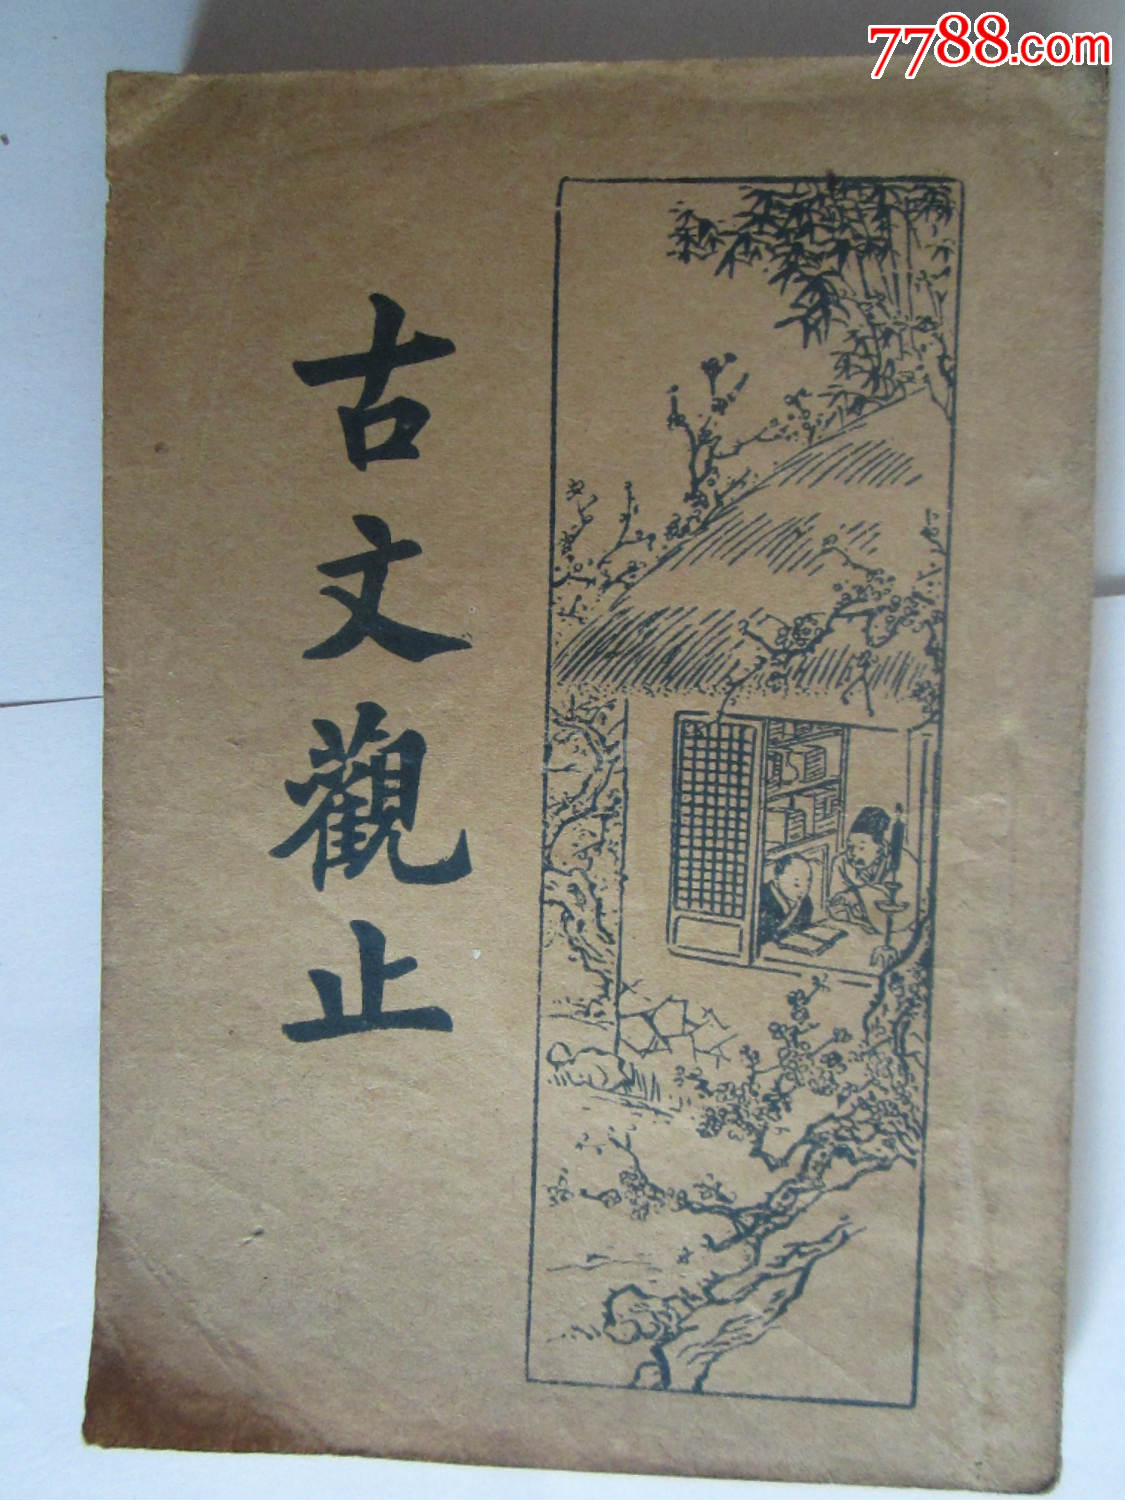 7788.com
古文觀止